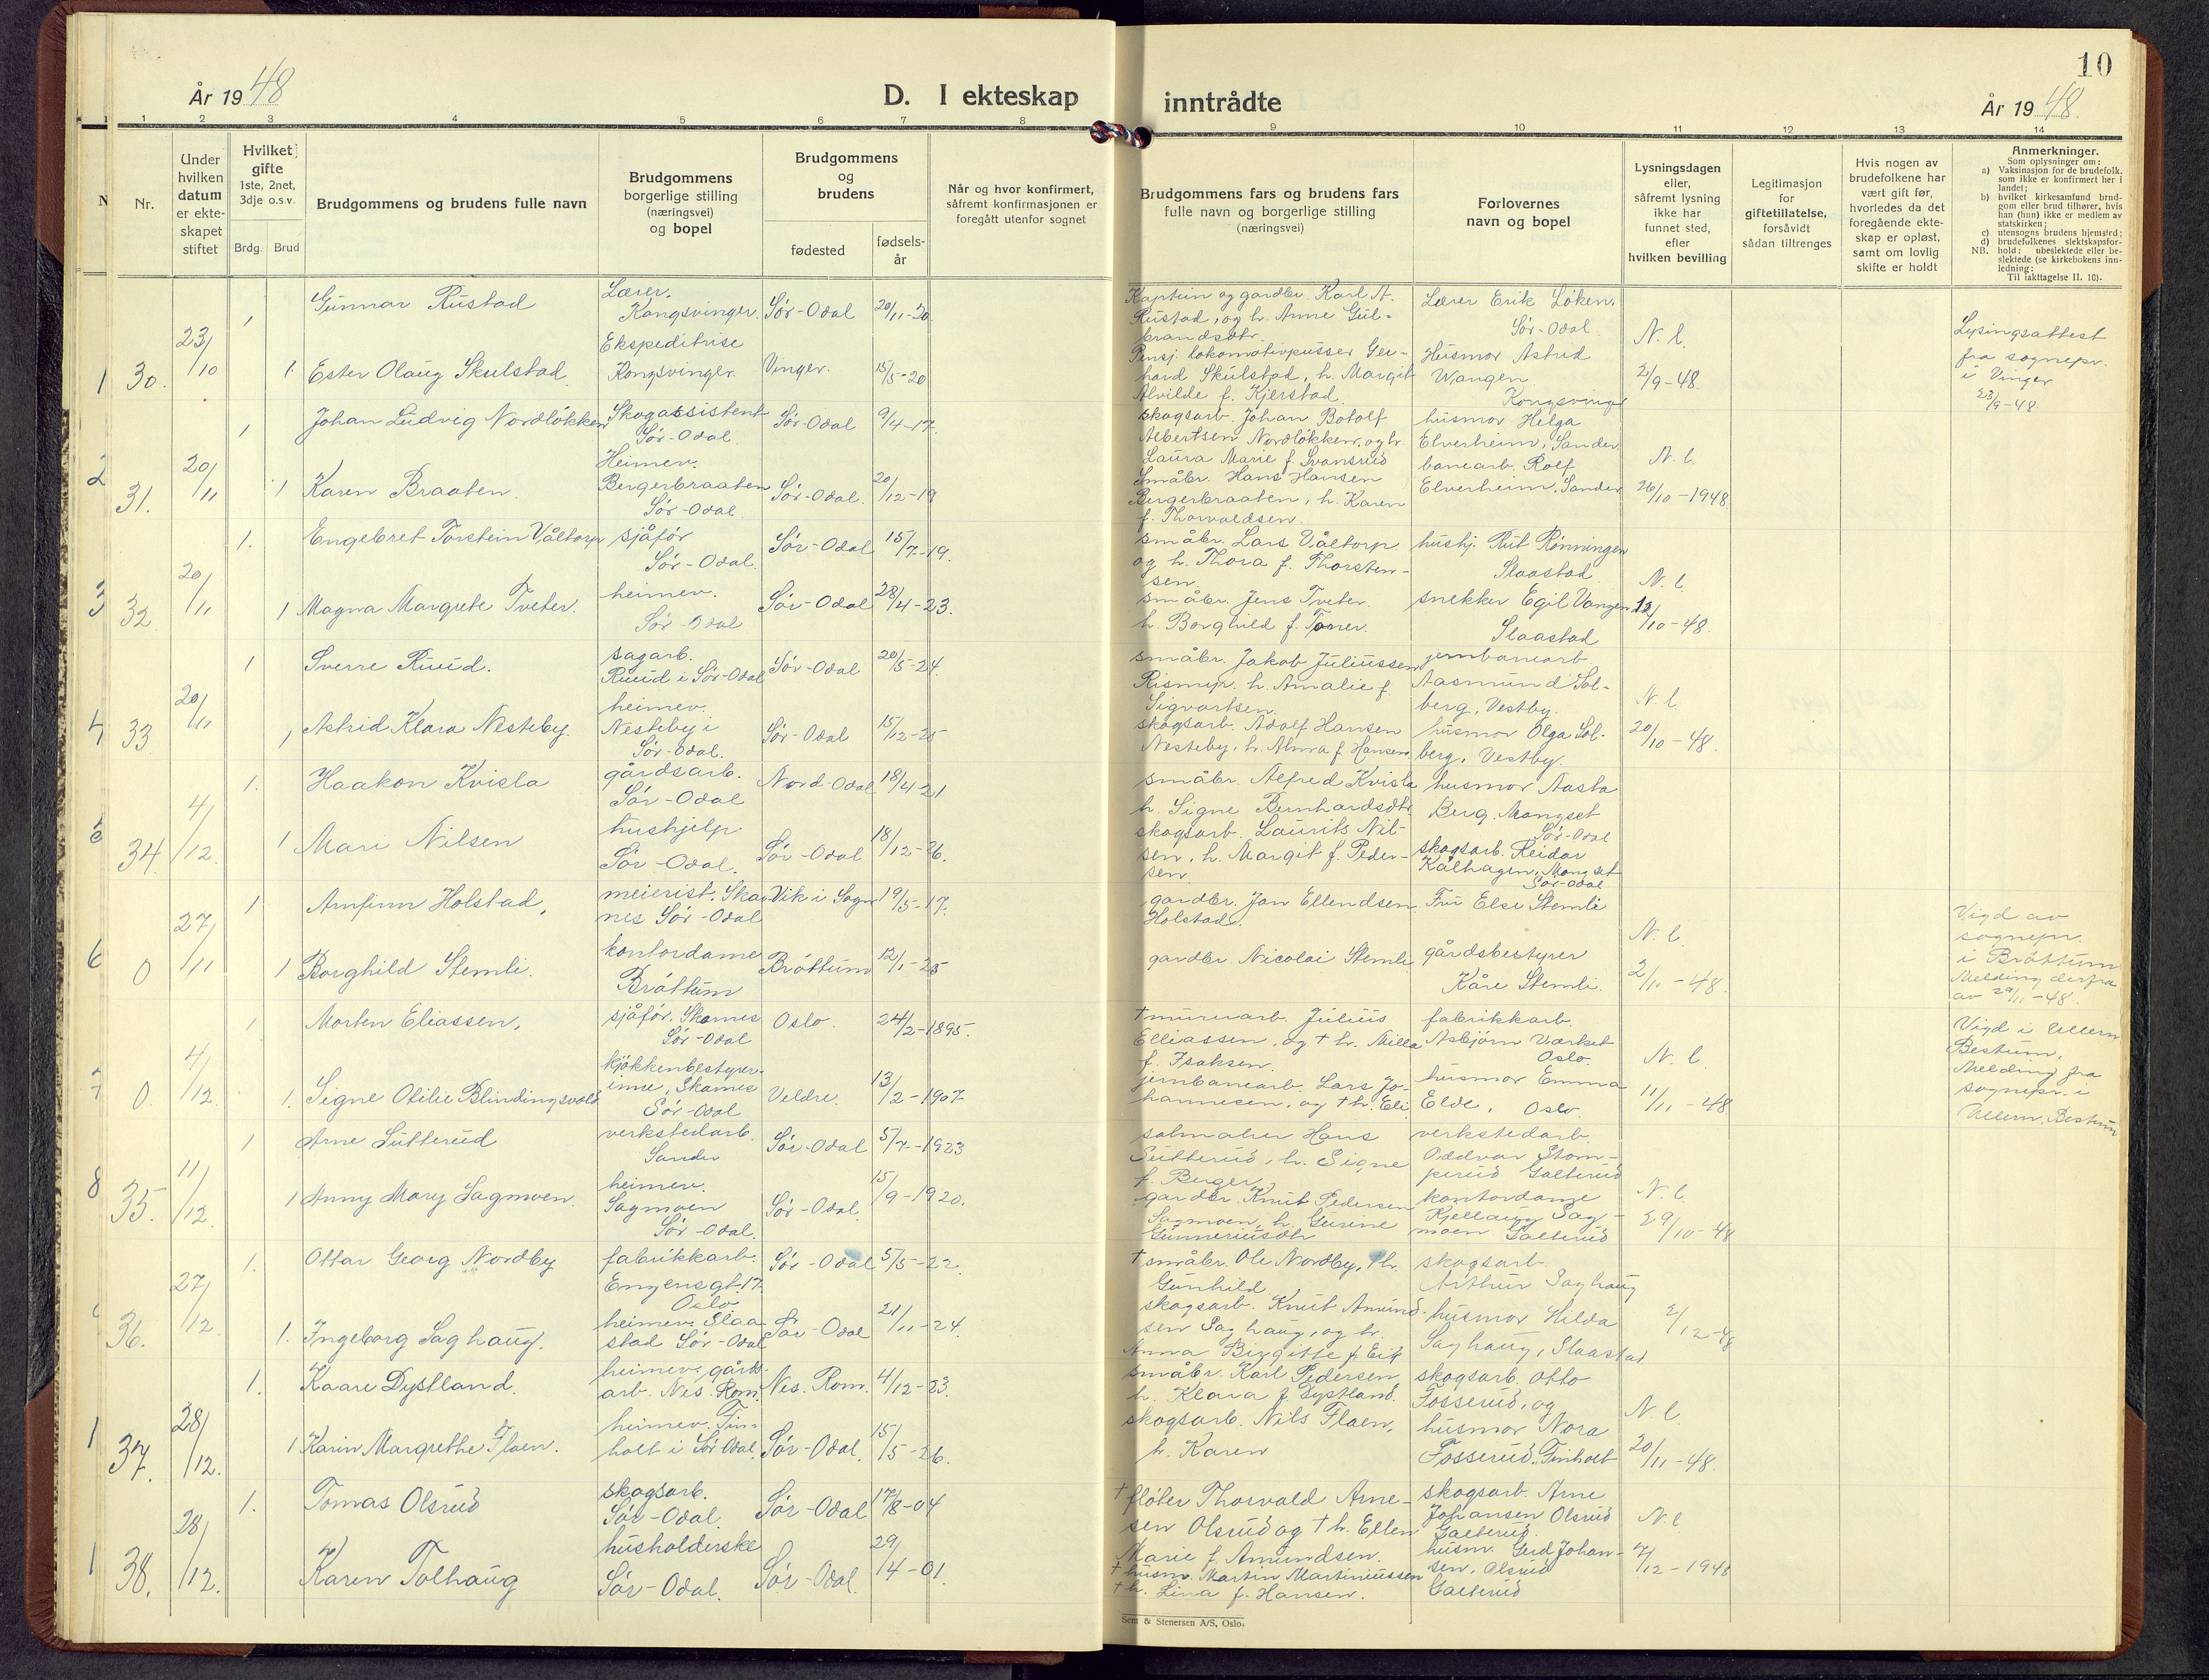 År 1948
D. I ekteskap inntrådte
10
År 1948.
1 2 3 4 5 6 7 8 9 10 11 12 13 14
Nr.
Under hvilken datum er ekteskapet stiftet
Hvilket gifte 1ste, 2net, 3dje o.s.v.
Brdg. Brud
Brudgommens og brudens fulle navn
Brudgommens borgerlige stilling (næringsvei) og bopel
Brudgommens og brudens
fødested
fødselsår
Når og hvor konfirmert, såfremt konfirmasjonen er foregått utenfor sognet
Brudgommens fars og brudens fars fulle navn og borgerlige stilling (næringsvei)
Forlovernes navn og bopel
Lysningsdagen eller, såfremt lysning ikke har funnet sted, efter hvilken bevilling
Legitimasjon for giftetillatelse, forsåvidt sådan tiltrenges
Hvis nogen av brudefolkene har vært gift før, hvorledes da det foregående ekteskap er opløst, samt om lovlig skifte er holdt
Anmerkninger.
Som oplysninger om:
a) Vaksinasjon for de brudefolk, som ikke er konfirmert her i landet;
b) hvilket kirkesamfund brudgom eller brud tilhører, hvis han (hun) ikke er medlem av statskirken;
c) utensogns brudens hjemsted;
d) brudefolkenes slektskapsforhold: ubeslektede eller beslektede (se kirkebokens innledning;
NB. Til iakttagelse II. 10).
30. 23/10 1 Gunnar Rustad Lærer. Kongsvinger. Sør-Odal 20/11-20. Kaptein og gardbr. Karl A. Rustad, og h. Anne Gulbrandsdtr. Lærer Erik Løken, Sør-Odal. N. l.
1 Ester Olaug Skulstad. Ekspeditrise Kongsvinger. Vinger. 15/5-20 Pensj. lokomotivpusser Gerhard Skulstad, h. Margit Alvilde f. Kjerstad. Husmor Astrid Wangen Kongsvinger 2/9-48. Lysingsattest fra sognepr. i Vinger 23/9-48.
31. 20/11 1 Johan Ludvig Nordløkken Skogassistent Sør-Odal. Sør-Odal 9/4-17. skogsarb. Johan Botolf Albertsen Nordløkken, og h. Laura Marie f. Svansrud husmor Helga Elverheim, Sander N. l.
1 Karen Braaten. Heimev. Bergerbraaten Sør-Odal. Sør-Odal. 20/12-19 Småbr. Hans Hansen Bergerbraaten, h. Karen f. Thorvaldsen. banearb. Rolf Elverheim, Sander 26/10-1948.
32 20/11 1. Engebret Torstein Våltorp sjåfør Sør-Odal. Sør-Odal 15/7-19. småbr. Lars Våltorp og h. Thora f. Thorstensen. hushj. Rut Rønningen Slaastad. N. l.
1 Magna Margrete Tveter. heimev. Sør-Odal Sør-Odal 28/4-23. småbr. Jens Tveter. h. Borghild f. Toner. snekker Egil Vangen Slaastad 12/10-48.
33. 20/11 1 Sverre Ruud. sagarb. Ruud i Sør-Odal Sør-Odal 20/5-24. småbr. Jakob Juliussen h. Amalie f. Sigvartsen. jernbanearb. Aasmund Solberg, Vestby. N. l.
1 Astrid Klara Nesteby. heimev. Nesteby i Sør-Odal. Sør-Odal 15/12-25 skogsarb. Adolf Hansen Nesteby, h. Alma f. Hansen husmor Olga Solberg, Vestby. 20/10-48.
34. 4/12. 1. Haakon Kvisla gårdsarb. Sør-Odal Nord-Odal 18/4-21 småbr. Alfred Kvisla h. Signe Bernhardsdtr. husmor Aasta Berg. Mangset Sør-Odal
1 Mari Nilsen hushjelp. Sør-Odal. Sør-Odal 18/12-26. skogsarb. Laurits Nilsen, h. Margit f. Pedersen skogsarb. Reidar Kålhagen, Mangset Sør-Odal
0 27/11 1 Arnfinn Holstad, meierist. Skarnes Sør-Odal Vik i Sogn 19/5-17. gardbr. Jan Ellendsen Holstad. Fru Else Stemli N. l. Vigd av sognepr. i Brøttum Melding derfra av 29/11-48.
1 Borghild Stemli. kontordame Brøttum Brøttum 12/1-25 gardbr. Nicolai Stemli gårdsbestyrer Kåre Stemli. 2/11-48.
0. 4/12. 1 Morten Eliassen, sjåfør. Skarnes Sør-Odal Oslo. 24/2-1895. † murerarb. Julius Elliassen, og † h. Milla f. Isaksen. fabrikkarb. Asbjørn Værket Oslo. N. l. Vigd i Ullern Bestum, Melding fra sognepr. i Ullern, Bestum
1. Signe Otilie Blindingsvold kjøkkenbestyrerinne, Skarnes Sør-Odal Veldre. 13/2-1907 jernbanearb. Lars Johannesen, og † h. Eli husmor Emma Elde, Oslo. 11/11-48
35. 11/12. 1 Arne Sutterud verkstedarb. Sander Sør-Odal 5/7-1923 salmaker Hans Sutterud, h. Signe f. Berger, verkstedarb. Oddvar Stomperud Galterud N. l.
1 Anny Mary Sagmoen. heimev. Sagmoen Sør-Odal. Sør-Odal. 15/9-1920. gardbr. Knut Pedersen Sagmoen, h. Gurine Gunneriusdtr kontordame Kjellaug Sagmoen Galterud 29/10-48
36. 27/12. 1. Ottar Georg Nordby fabrikkarb. Oslo Sør-Odal 5/5-22. † småbr. Ole Nordby, † h. Gunhild. skogsarb. Arthur Saghaug
1. Ingeborg Saghaug. heimev. Slaastad Sør-Odal Sør-Odal 21/11-24. skogsarb. Knut Amundsen Saghaug, og h. Anna Birgitte f. Eik husmor Hilda Saghaug, Slaastad 2/12-48
37. 28/12. 1. Kaare Dystland. heimev. gårdsarb. Nes. Rom. Nes. Rom. 4/12-23. småbr. Karl Pedersen, h. Klara f. Dystland. skogsarb. Otto Fosserud, og N. l.
1 Karin Margrethe Flaen. heimev. Tinholt i Sør-Odal. Sør-Odal. 15/5-26. skogsarb. Nils Flaen, h. Karen husmor Nora Fosserud, Tinholt 20/11-48.
38. 28/12. 1. Tomas Olsrud skogsarb. Sør-Odal. Sør-Odal 17/8-04 † fløter Thorvald Arnesen Olsrud og † h. Ellen Marie f. Amundsen. skogsarb. Arne Johansen Olsrud Galterud. N. l.
Karen Tolhaug husholderske Sør-Odal. Sør-Odal. 29/4-01. † husm. Martin Martiniussen † h. Lina f. Hansen. husm. Gerd Johansen, Olsrud Galterud 7/12-1948
Sem & Stenersen A/S, Oslo.